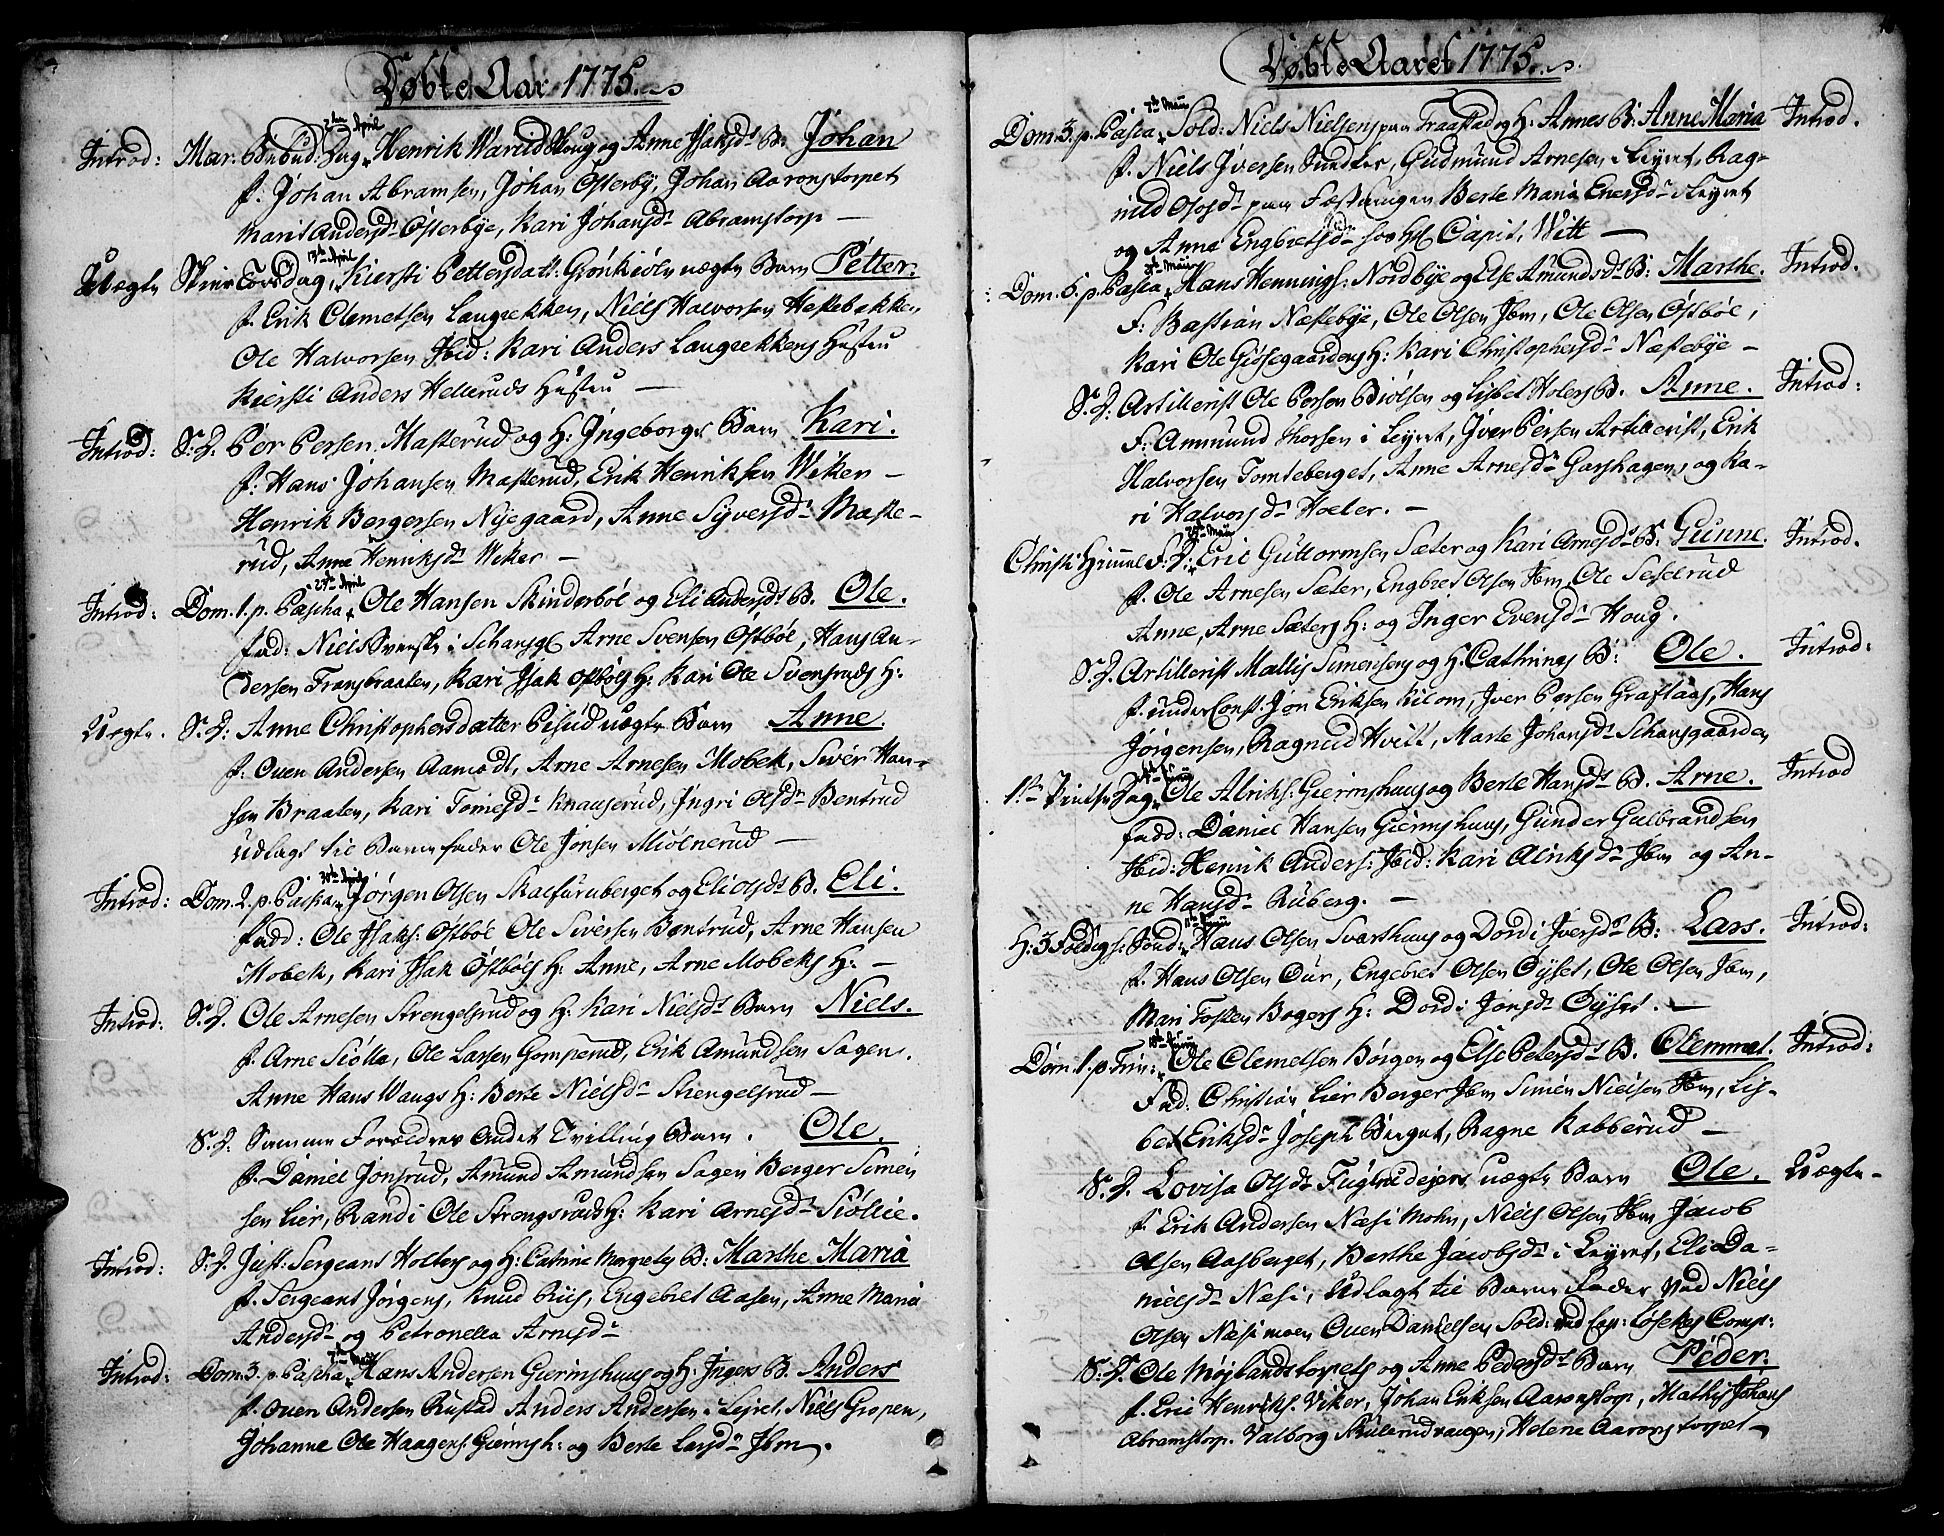 Døbte Aar 1775.
2den April
Introd: Mar. Bebud: Dag Henrik Warud Houg og Anne Jsaksdr B: Johan
f. Johan Abramsen, Johan Østerby, Johan Aaronstorpet
Marit Andersdr Østerbye, Kari Johansdr Abramstorp —
13de April
Uægte Skiær Torsdag, Kiersti Pettersdatt: Grønkiøln uægte Barn Petter.
f. Erik Clemetsen Langrekken, Niels Halvorsen Hestebakken,
Ole Halvorsen Jbid: Kari Anders Langrekkens Hustru
Kiersti Anders Hellerud Hustru —
Introd: S. D. Per Persen Masterud og H: Ingeborgs Barn Kari.
f: Hans Johansen Masterud, Erik Henriksen Wiker —
Henrik Bergersen Nyegaard, Anne Syversdr Maste-
rud, Anne Henriksdr Wiker —
23de April
Introd: Dom. 1. p. Pascha Ole Hansen Skinderbøl og Eli Andersdr B. Ole.
fad: Niels Svenske i Schansgd Arne Svensen Østbøl, Hans An-
dersen Fransbraaten, Kari Jsak Østbøls H: Kari Ole Svensruds H:
Uægte. S. D: Anne Christophersdatter Pisud uægte Barn Anne.
f. Ouen Andersen Aamodt, Arne Arnesen Mobek, Siver Han-
sen Braaten, Kari Tomesdr Knauserud, Jngri Olsdr Bentrud
Udlagt til Barnefader Ole Jonsen Miølnerud —
30te April
Introd: Dom. 2. p. Pascha Jørgen Olsen Skalfuruberget og Eli Olsdr B. Eli.
fadd: Ole Jsaks: Østbøl Ole Siversen Bentrud, Arne Hansen
Mobek, Kari Jsak Østbøls H: Anne, Arne Mobeks H: —
Introd: S. D. Ole Arnesen Strengelsrud og H: Kari Nielsdr Barn Niels.
f. Arne Siølla, Ole Larsen Gomperud, Erik Amundsen Sagen.
Anne Hans Waugs H: Berte Nielsdr Strengelsrud —
S. D: Samme Forældres andet Tvilling Barn. Ole.
f. Daniel Jonsrud, Amund Amundsen Sagen Berger Simen
sen Lier, Randi Ole Strengsruds H: Kari Arnesdr Siøllie.
Introd: S. D. Just: Sergeant Holters og H: Catrine Margrets B: Marthe Maria
f. Sergeant Jørgens, Knud Riis, Engebret Aasen, Anne Maria
Andersdr og Petronella Arnesdr
7de Maii
Introd: Dom. 3. p. Pascha Hans Andersen Giermshuus og H. Ingers B. Anders
f. Ouen Andersen Rustad Anders Andersen i Lejret Niels Gropen,
Johanne Ole Haagens: Giermsh: og Berte Larsdr Jbm.
Døbte Aaret 1775.
7de Maii
Dom. 3. p. Pascha Sold: Niels Nielsens paa Fraastad og H: Annes B. Anne Maria Introd.
f. Niels Jversen Tundler, Gudmund Arnesen i Leyret, Rag-
nild Olsdr paa Fæstningen Berte Maria Enersdr i Leyret
og Anna Engbretsdr hos Hl Capit. Witt —
21de Maii
Dom. 5. p. Pascha Hans Hennings: Nordbye og Else Amundsdr B: Marthe. Introd.
F: Bastian Næstebye, Ole Olsen Jbm, Ole Olsen Østbøl,
Kari Ole Giøsegaardens H: Kari Christophersdr Næstebye —
S. D: Artillerist Ole Persen Biølsen og Lisbet Holers B. Anne. Introd:
F: Ammund Thorsen i Leyret, Jver Persen Artillerist, Erik
Halvorsen Tomteberget, Anne Arnesdr Garshagen, og Ka-
ri Halvorsdr Holer. —
25de Maii
Christi Himmel F: D: Eric Guttormsen Sæter og Kari Arnesdr B. Gunne. Introd.
f. Ole Arnesen Sæter, Engbret Olsen Jbm, Ole Sesselrud
Anne, Arne Sæters H: og Inger Evensdr Houg.
S. D. Artillerist Mattis Simensens og H. Cathrines B: Ole. Introd:
f. under Const: Jon Eriksen Kilom, Jver Persen Graflags, Hans
Jørgensen, Ragnild Hvitt, Marte Johansdr Schansgaarden
4de Junii
1ste Pintse Dag Ole Alriks: Giermshuus og Berte Hansdr B. Arne. Introd
fadd: Daniel Hansen Giermshuus, Gunder Gulbrandsen
Jbid: Henrik Anders: Jbid: Kari Alriksdr Jbm og An-
ne Hansdr Ruberg. —
11te Junii
H: 3 Foldigh: Sønd: Hans Olsen Svarthuus og Dordi Jversdr B: Lars. Introd:
f. Hans Olsen Our, Engebret Olsen Øyset, Ole Olsen Jbm,
Mari Tosten Bogers H: Dordi Jonsdr Øyset. —
18de Junii
Dom. 1. p. Trin: Ole Clemetsen Børgen og Else Petersdr B. Clemmet. Introd:
Fad: Christian Lier Berger Jbm Simen Nielsen Jbm, Lis-
bet Eriksdr Joseph Birget, Ragne Kabberud —
S. D. Lovisa Olsdr Fuglrudejers uægte Barn Ole. Uægte.
f Erik Andersen Næsi Mohn, Niels Olsen Jbm Jacob
Olsen Aasberget, Berthe Jacobsdr i Leyret, Eli Da-
nielsdr Næsi, Udlagt til Barne Fader Ved Niels
Olsen Næsimoen Ouen Danielsen Sold: ved Cap: Løsekes Comp:
S. D. Ole Møjlandstorpets og Anne Pedersdr Barn Peder.
f. Eric Henriks: Viker, Johan Eriksen Aaronstorp, Mathis Johans
Abramstorp. Valborg Skulerudvangen, Helene Aaronstorpet —